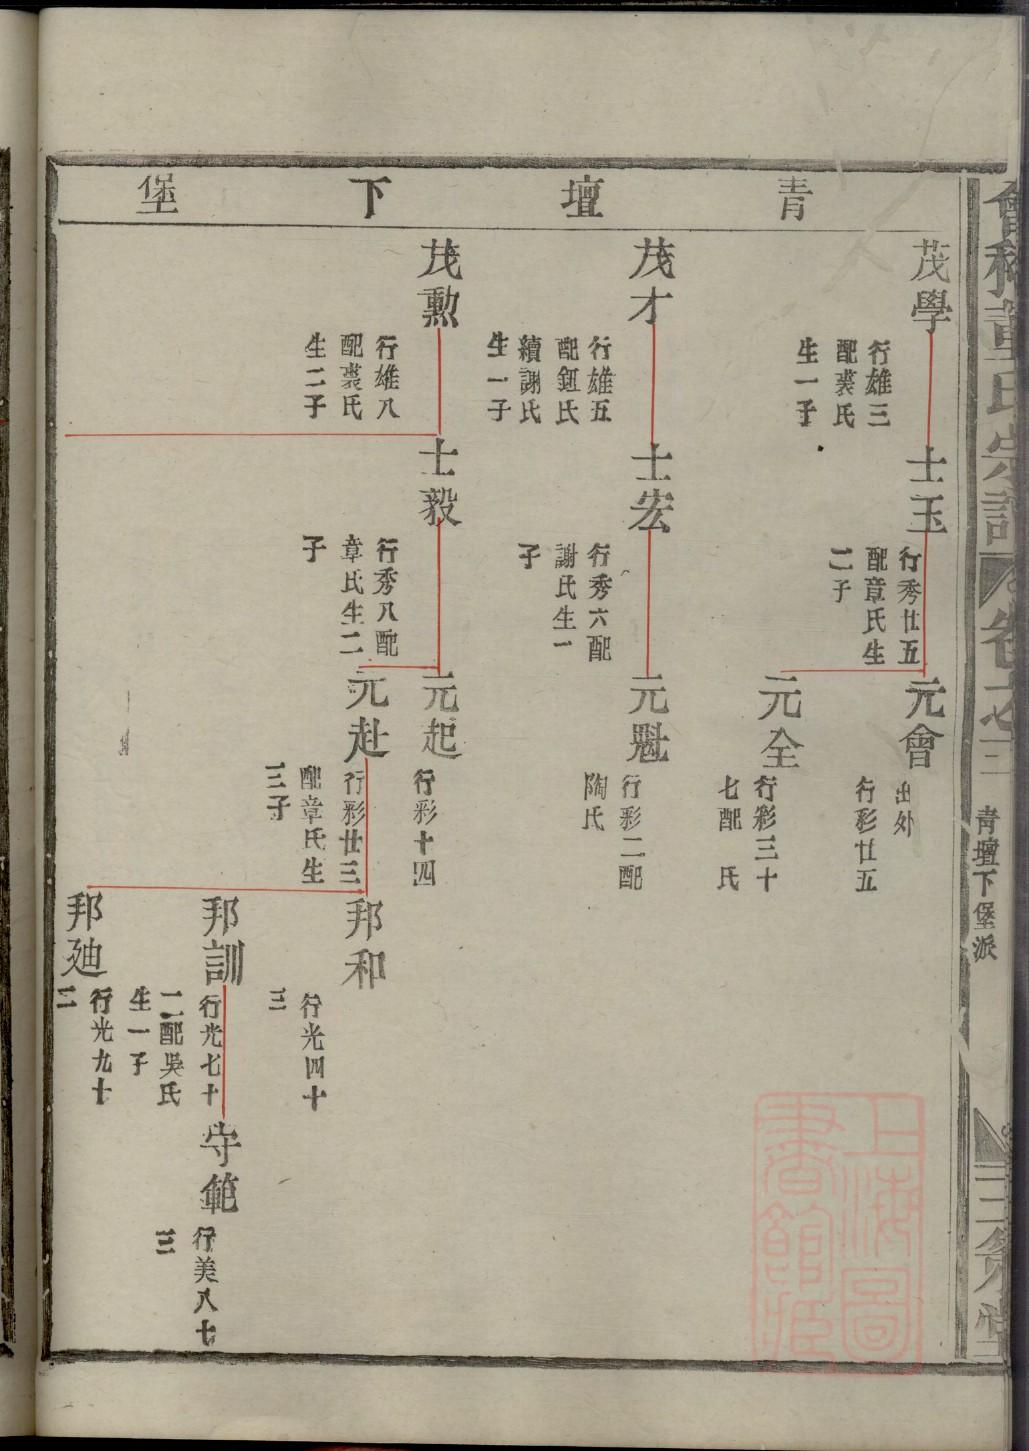 會稽董氏宗譜
卷之三
青壇下堡派
三策堂
青壇下堡
茂學
行雄三
配裘氏
生一子
士玉
行秀廿五
配章氏生
二子
元會
出外
行彩廿五
元全
行彩三十
七配 氏
茂才
行雄五
配鈕氏
續謝氏
生一子
士宏
行秀六配
謝氏生一
子
元魁
行彩二配
陶氏
茂勲
行雄八
配裘氏
生二子
士毅
行秀八配
章氏生二
子
元起
行彩十四
元赴
行彩廿三
配章氏生
三子
邦和
行光四十
三
邦訓
行光七十
二配吳氏
生一子
守範
行美八十
三
邦廸
行光九十
二
上海圖
書館藏